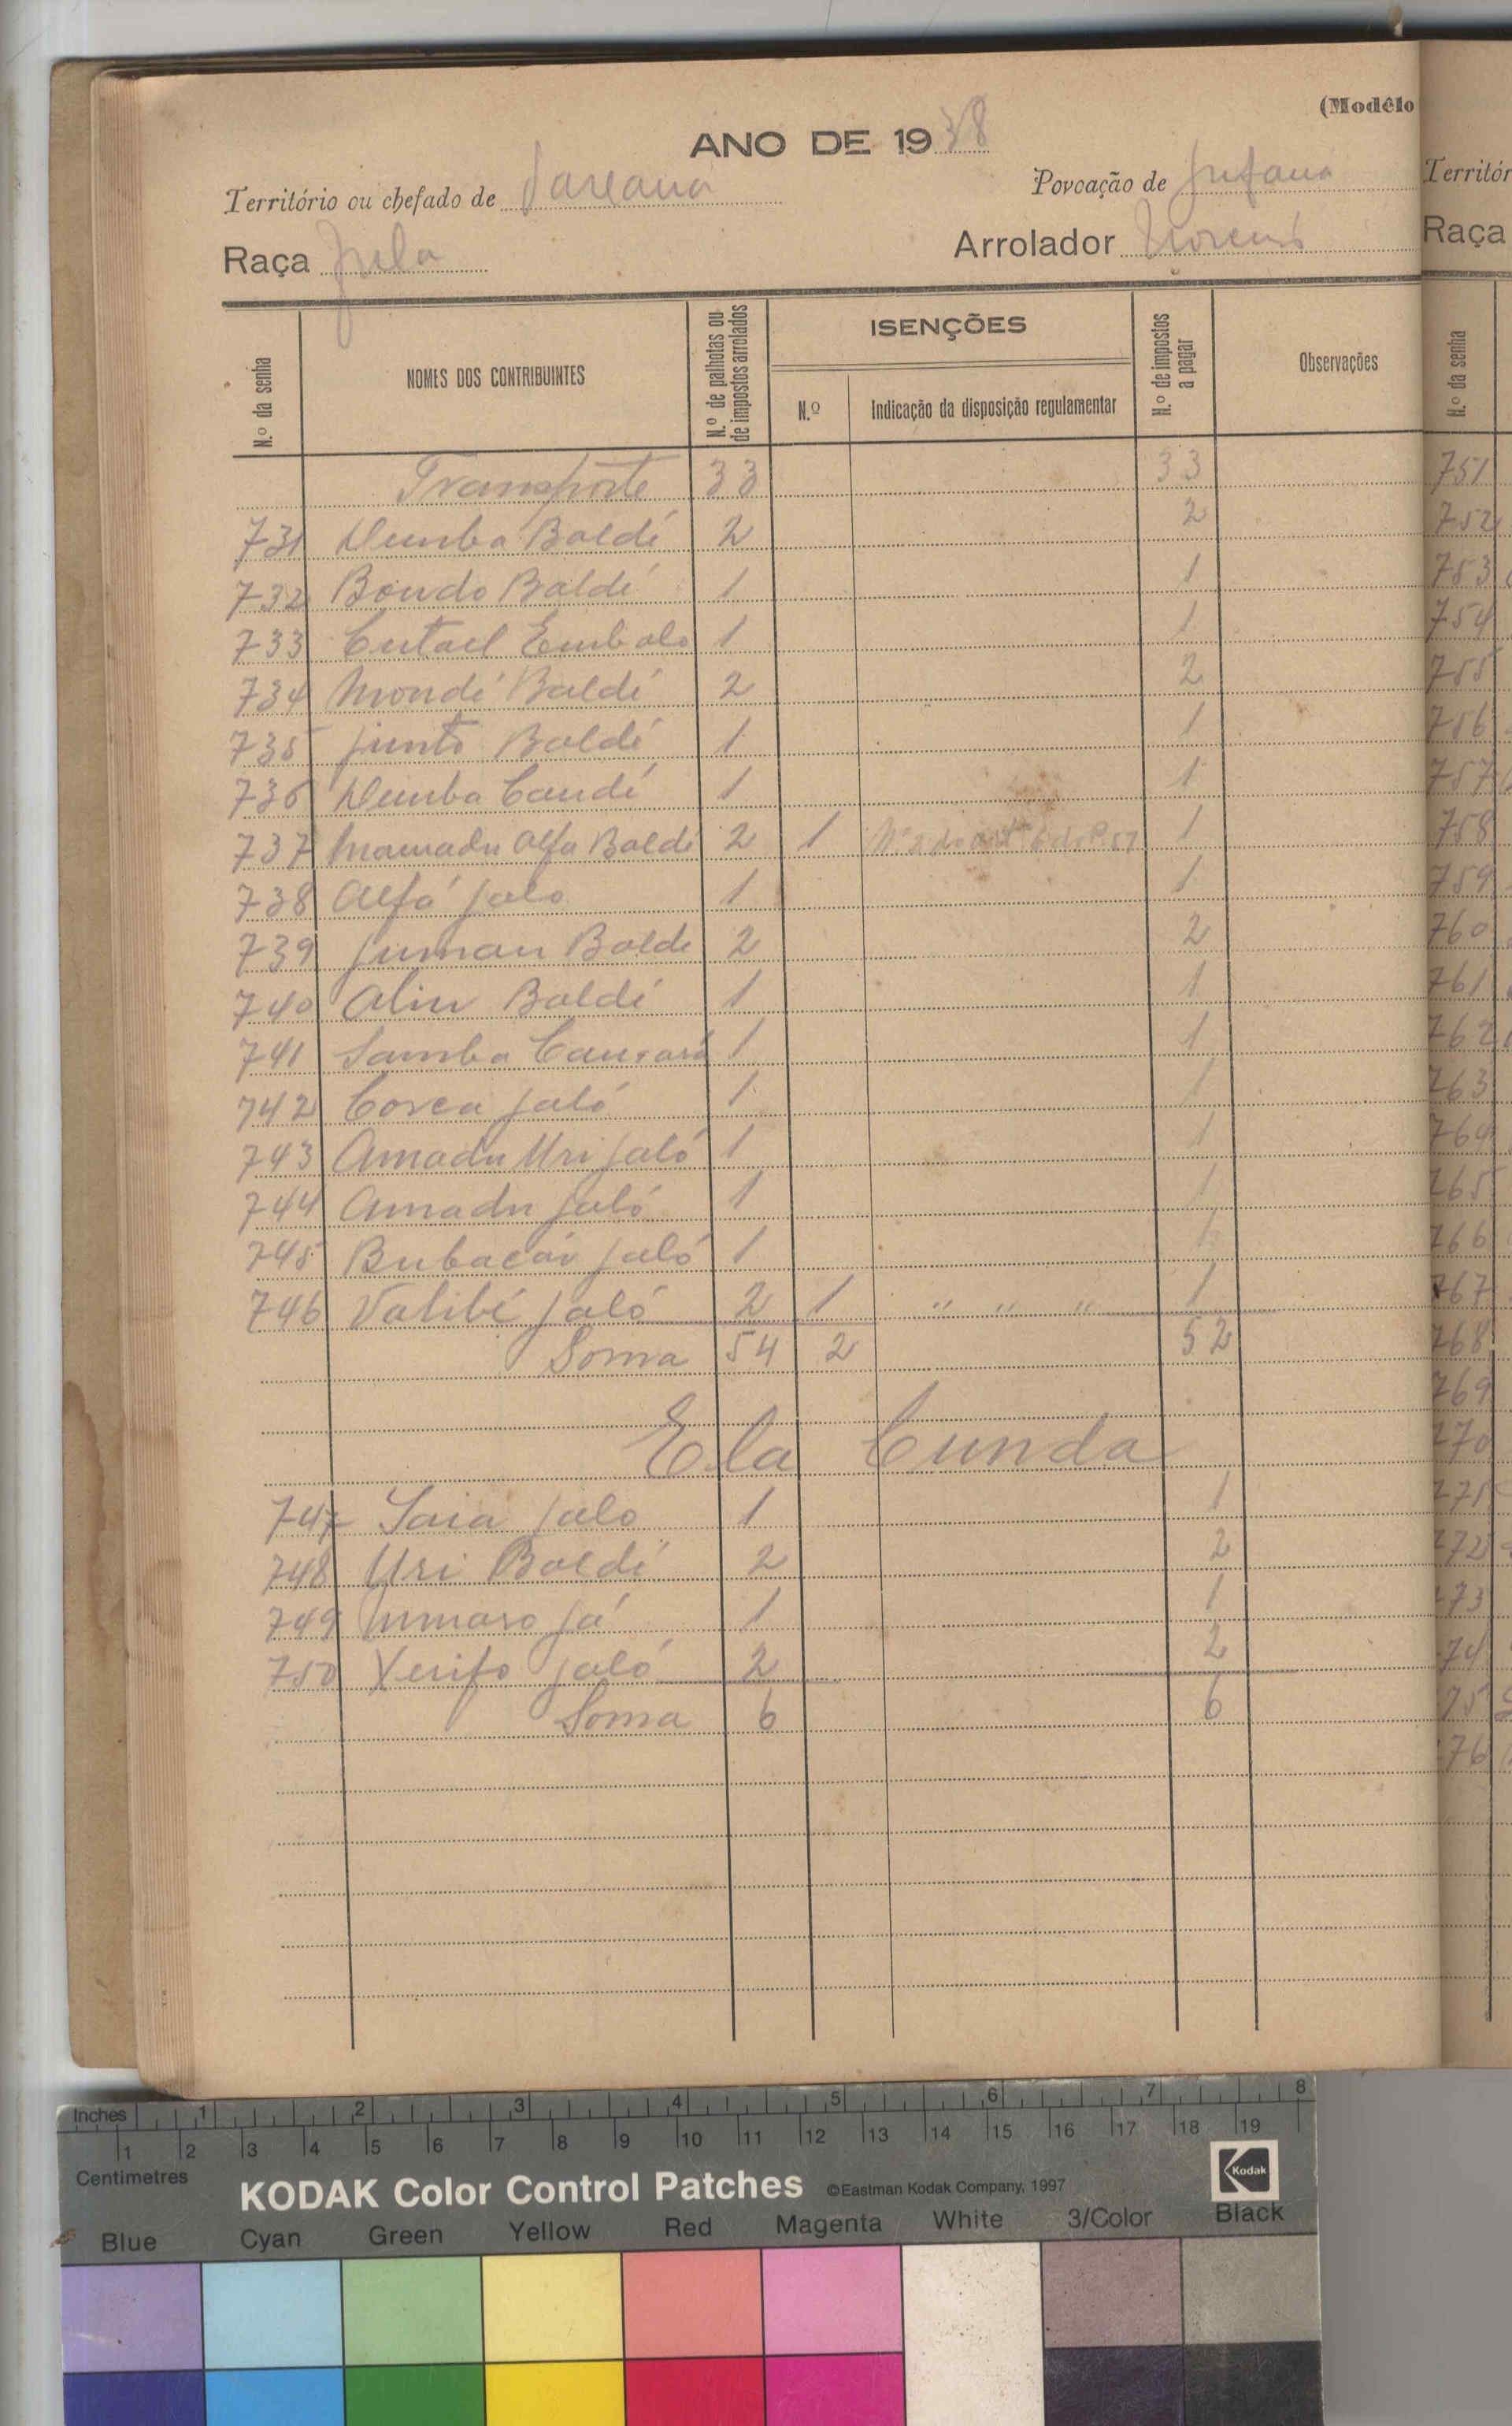 (Modêlo
ANO DE 1938
Território ou chefado de
Povoação de
Raça Fula
Arrolador
N.º da senha
NOMES DOS CONTRIBUINTES
N.º de palhotas ou de impostos arrolados
ISENÇÕES
N.º
Indicação da disposição regulamentar
N.º de impostos a pagar
Observações
Transporte 33 33
731 Demba Baldé 2 2
732 Boudo Baldé 1 1
733 Embalo 1 1
734 Mondé Baldé 2 2
735 Junto Baldé 1 1
736 Demba Candé 1 1
737 Mamadu Alfa Baldé 2 1 1
738 Alfá Jalo 1 1
739 Juman Balde 2 2
740 Aliu Baldé 1 1
741 Samba 1 1
742 Corea Jaló 1 1
743 Amadu Uri Jaló 1 1
744 Amadu Jaló 1 1
745 Bubacár Jaló 1 1
746 Valibé Jaló 2 1 " " " 1
Soma 54 2 52
Ela Cunda
747 Saia Jalo 1 1
748 Uri Baldé 2 2
749 Umaro Já 1 1
750 Xerifo Jaló 2 2
Soma 6 6
Territór
Raça
N.º da senha
751
752
753
754
755
756
757
758
759
760
761
762
763
764
765
766
767
768
769
770
771
772
773
774
775
776
Inches 1 2 3 4 5 6 7 8
1 2 3 4 5 6 7 8 9 10 11 12 13 14 15 16 17 18 19
Centimetres
KODAK Color Control Patches ©Eastman Kodak Company, 1997 Kodak
Blue Cyan Green Yellow Red Magenta White 3/Color Black